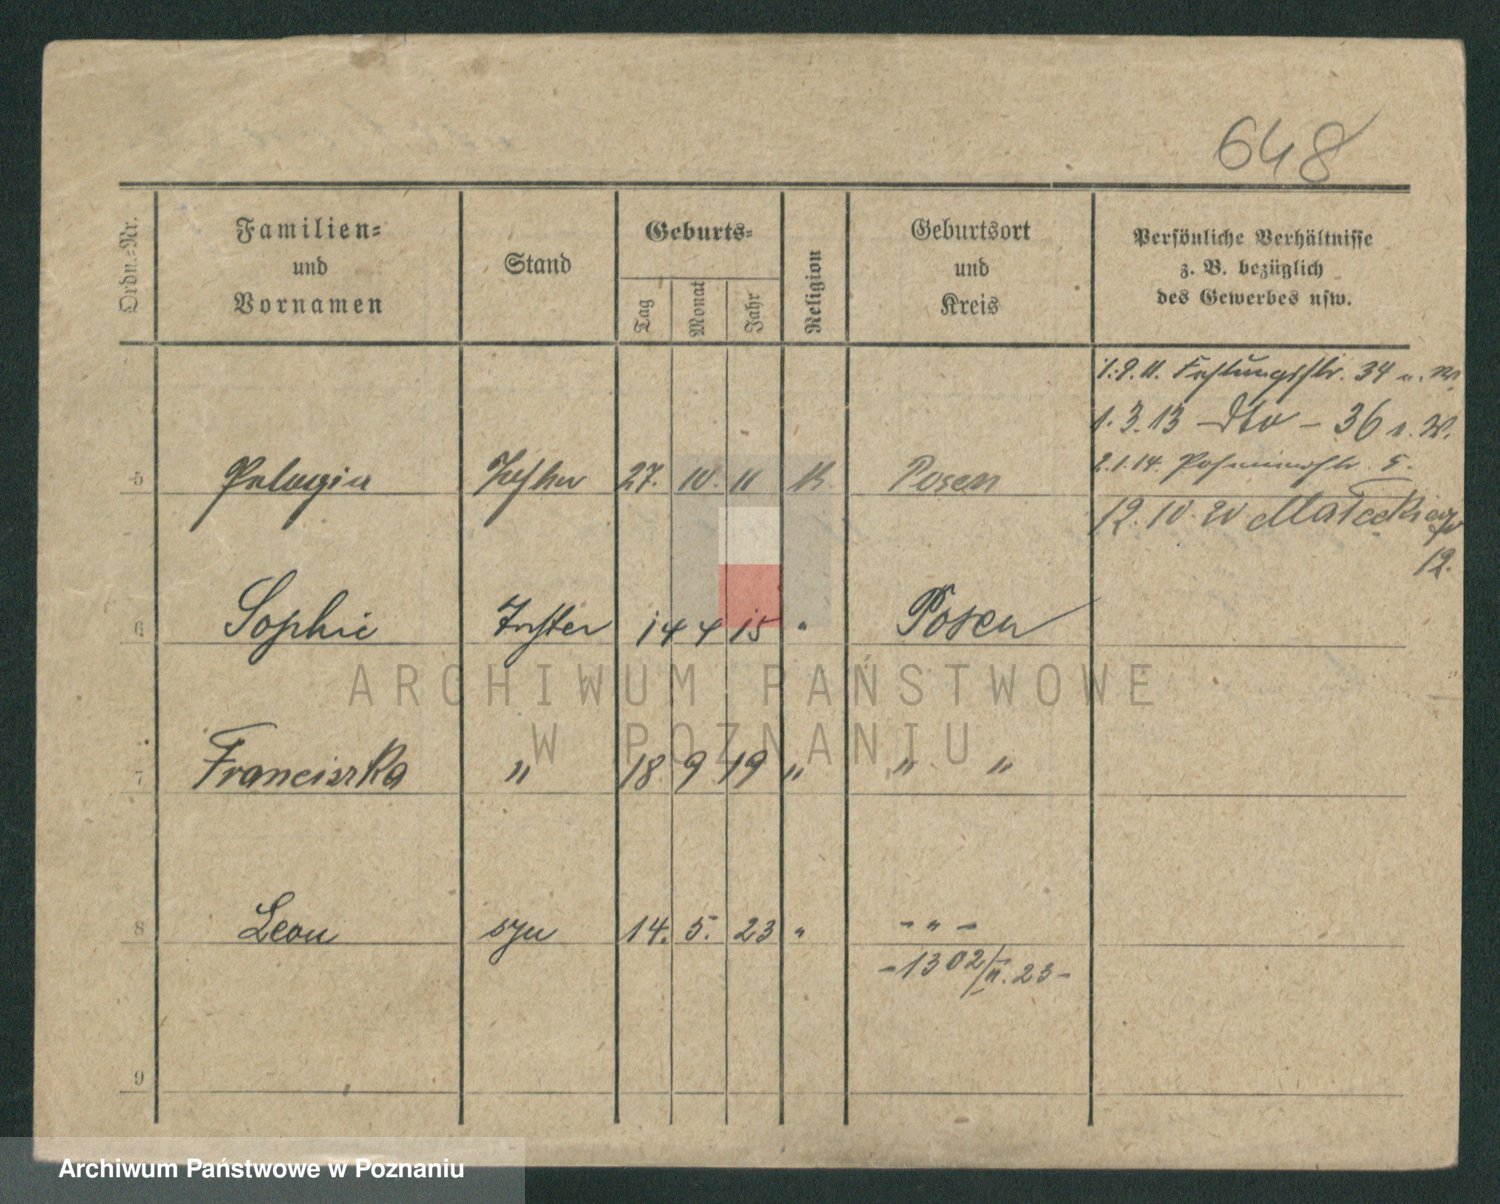 648
Ordn.-Nr.
Familien-
und
Vornamen
Stand
Geburts-
Tag
Monat
Jahr
Religion
Geburtsort
und
Kreis
Persönliche Verhältnisse
z. B. bezüglich
des Gewerbes usw.
1.9.11. Festungsstr. 34 n. W.
1.3.13 - dto - 36 n. W.
2.1.14. 5.
5 Pelagia Tochter 27. 10. 11 K. Posen
12.10.20 Małeckiego
12.
6 Sophie Tochter 14 4 15 " Posen
ARCHIWUM PAŃSTWOWE
W POZNANIU
7 Franciszka " 18 9 19 " " "
8 Leon syn 14. 5. 23 " - " -
- 1302/II.23 -
9
Archiwum Państwowe w Poznaniu